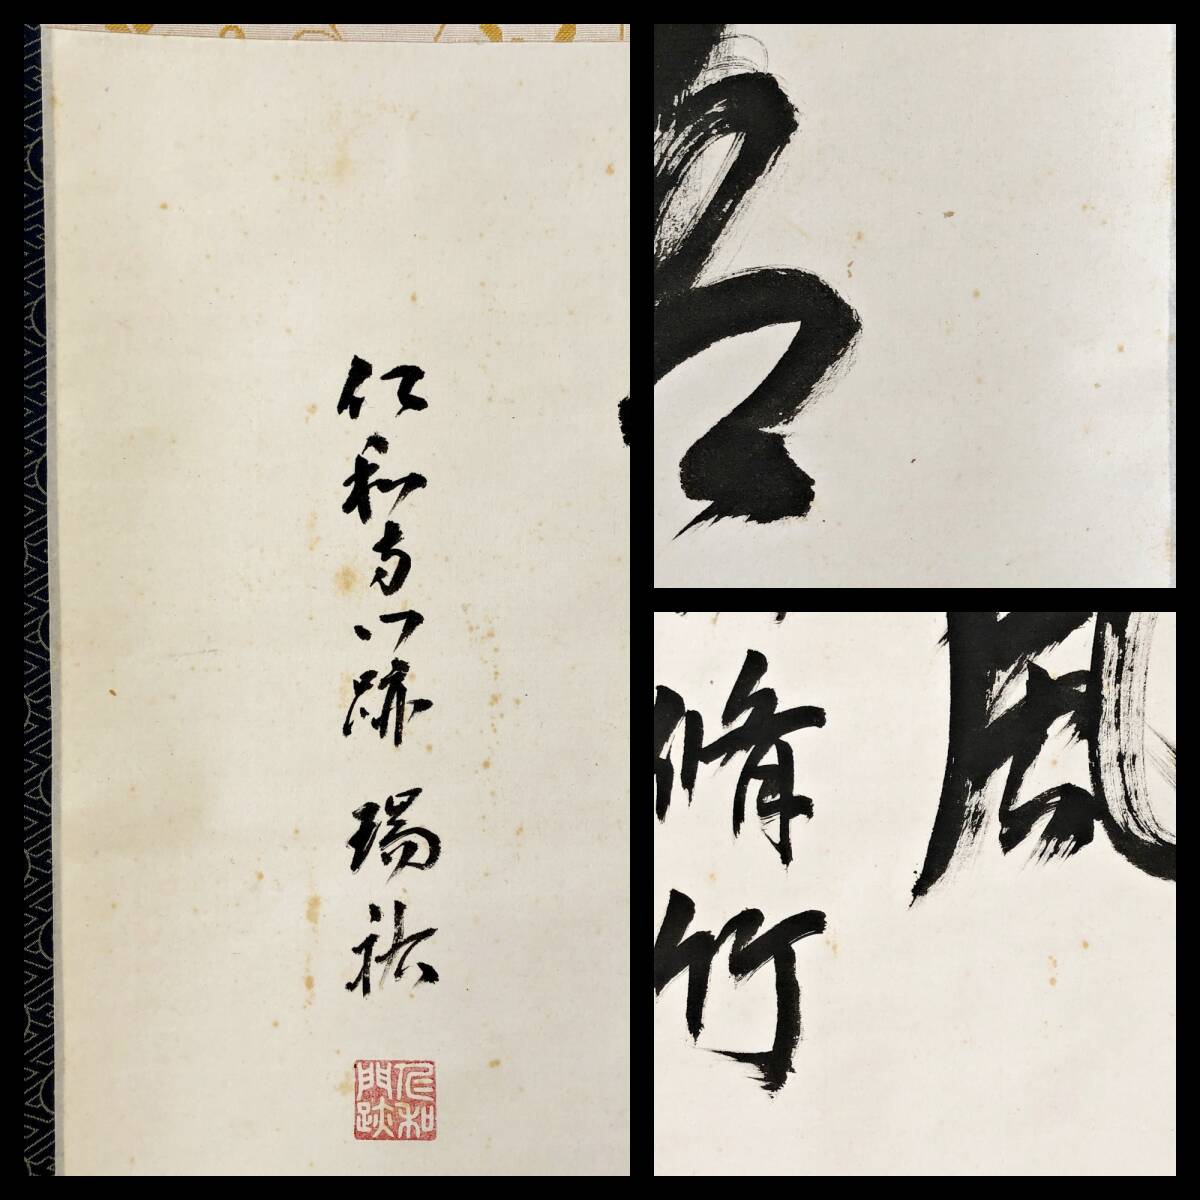 仁和寺門跡 瑞祐
仁和
門跡
風
脩竹